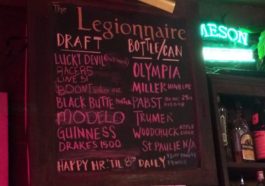 The
Legionnaire
DRAFT
LUCKY DEVIL
RACER 5
BLACK BUTTE
MODELO
GUINNESS
DRAKES 1500
BOTTLE/CAN
OLYMPIA
MILLER
PABST
TRUMER
WOODCHUCK
St PAULIE N/A
HAPPY HR. TIL 8 DAILY
MESON